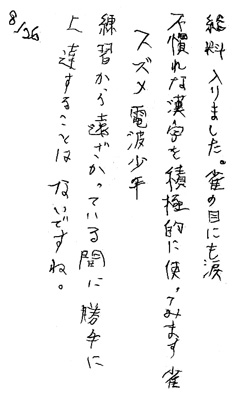 給料入りました。雀の目にも涙
不慣れな漢字を積極的に使ってみます雀
スズメ電波少年
練習から遠ざかっている間に勝手に
上達することはないですね。
8/26